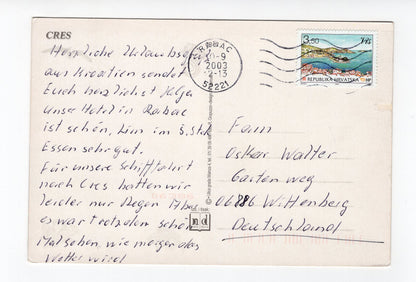 CRES
Herrliche Urlaubsgrüße
aus Kroatien sendet
Euch herzlichst Helga
Unser Hotel in Rabac
ist schön, bin im 5. Stock
Essen sehr gut.
Für unsere Schifffahrt
nach Cres hatten wir
leider nur Regen Aber
es war trotzdem schön
Mal sehen wie morgen das
Wetter wird
RABAC
2003
52221
3,50
REPUBLIKA HRVATSKA
Fam
Oskar Walter
Gartenweg
06886 Wittenberg
Deutschland